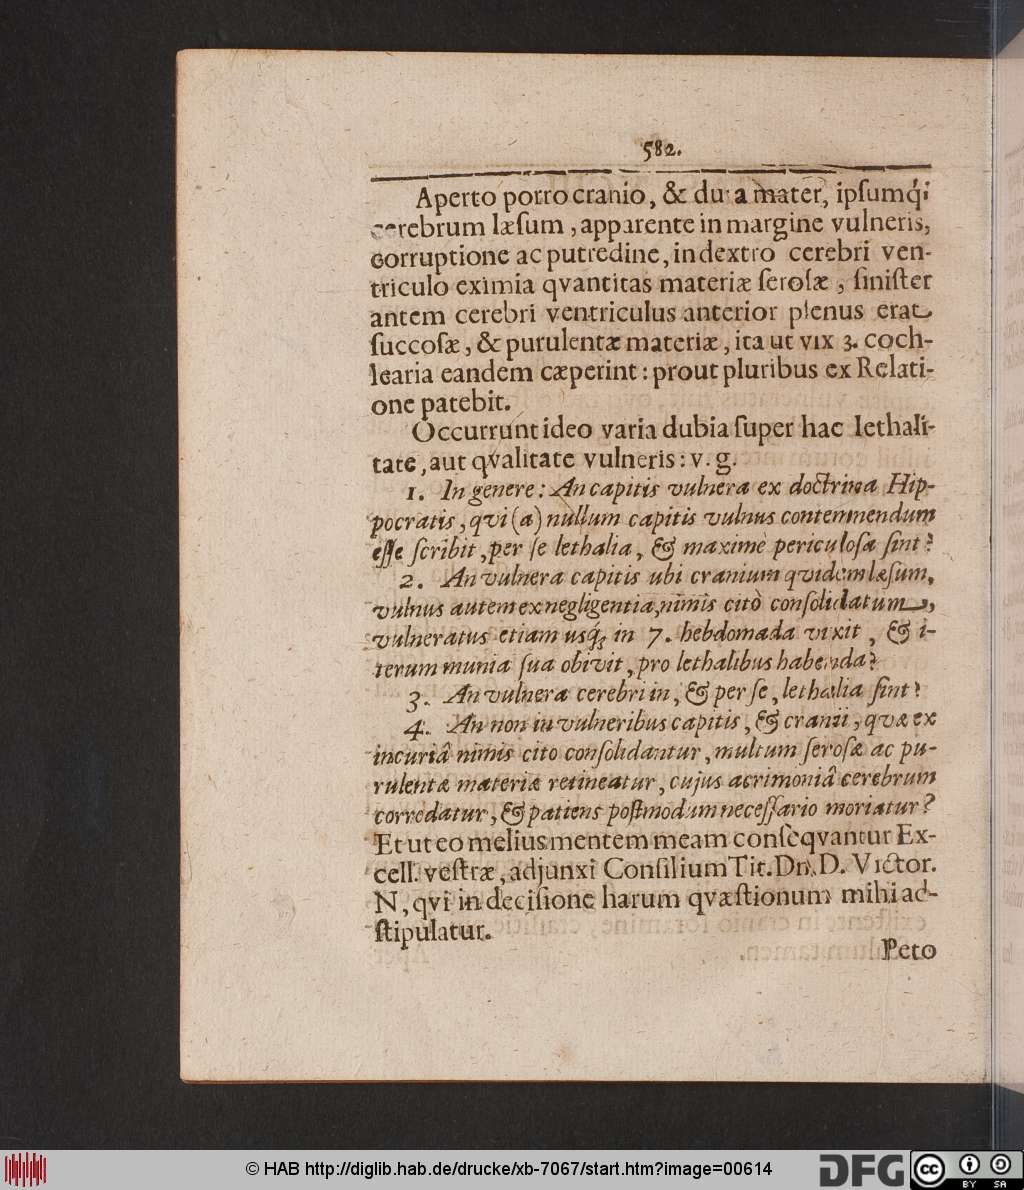 582.
Aperto porro cranio, & dura mater, ipſumq́;
cerebrum læſum, apparente in margine vulneris,
corruptione ac putredine, in dextro cerebri ven-
triculo eximia qvantitas materiæ ſeroſæ, ſiniſter
antem cerebri ventriculus anterior plenus erat
ſuccoſæ, & purulentæ materiæ, ita ut vix 3. coch-
learia eandem cæperint: prout pluribus ex Relati-
one patebit.
Occurrunt ideo varia dubia ſuper hac lethali-
tate, aut qvalitate vulneris: v. g.
1. In genere: An capitis vulnera ex doctrina Hip-
pocratis, qvi (a) nullum capitis vulnus contemnendum
eſſe ſcribit, per ſe lethalia, & maximè periculoſa ſint?
2. An vulnera capitis ubi cranium qvidem læſum,
vulnus autem ex negligentia, nimis citò conſolidatum,
vulneratus etiam usq́; in 7. hebdomada vixit, & i-
terum munia ſua obivit, pro lethalibus habenda?
3. An vulnera cerebri in, & per ſe, lethalia ſint?
4. An non in vulneribus capitis, & cranii, qvæ ex
incuriâ nimis cito conſolidantur, multum ſeroſæ ac pu-
rulentæ materiæ retineatur, cujus acrimoniâ cerebrum
corredatur, & patiens poſtmodum neceſſario moriatur?
Et ut eo melius mentem meam conſeqvantur Ex-
cell. veſtræ, adjunxi Conſilium Tit. Dn. D. Victor.
N, qvi in deciſione harum qvæſtionum mihi ad-
ſtipulatur.
Peto
© HAB http://diglib.hab.de/drucke/xb-7067/start.htm?image=00614
DFG
cc
BY SA